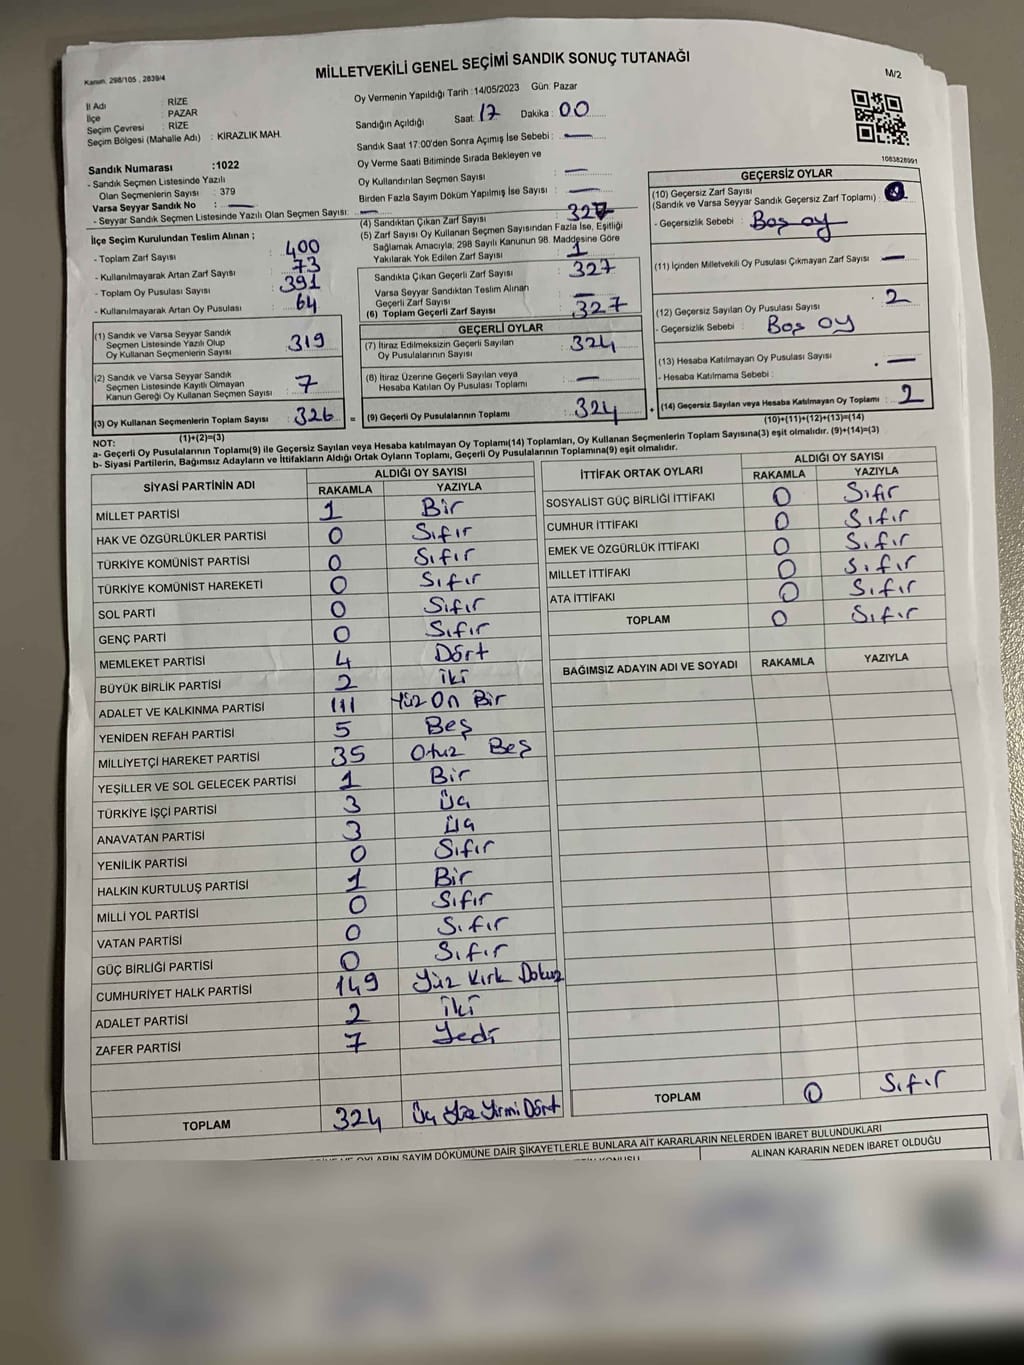 Kanun, 298/105 , 2839/4
MİLLETVEKİLİ GENEL SEÇİMİ SANDIK SONUÇ TUTANAĞI
M/2
İl Adı : RİZE
İlçe : PAZAR
Seçim Çevresi : RİZE
Seçim Bölgesi (Mahalle Adı) : KİRAZLIK MAH.
Sandık Numarası :1022
- Sandık Seçmen Listesinde Yazılı
Olan Seçmenlerin Sayısı : 379
Varsa Seyyar Sandık No : —
- Seyyar Sandık Seçmen Listesinde Yazılı Olan Seçmen Sayısı: —
Oy Vermenin Yapıldığı Tarih :14/05/2023 Gün: Pazar
Sandığın Açıldığı Saat: 17 Dakika : 00
Sandık Saat 17:00'den Sonra Açımış İse Sebebi : —
Oy Verme Saati Bitiminde Sırada Bekleyen ve
Oy Kullandırılan Seçmen Sayısı : —
Birden Fazla Sayım Döküm Yapılmış İse Sayısı : —
1083828991
İlçe Seçim Kurulundan Teslim Alınan ;
- Toplam Zarf Sayısı : 400
- Kullanılmayarak Artan Zarf Sayısı : 73
- Toplam Oy Pusulası Sayısı : 391
- Kullanılmayarak Artan Oy Pusulası : 64
(1) Sandık ve Varsa Seyyar Sandık
Seçmen Listesinde Yazılı Olup
Oy Kullanan Seçmenlerin Sayısı : 319
(2) Sandık ve Varsa Seyyar Sandık
Seçmen Listesinde Kayıtlı Olmayan
Kanun Gereği Oy Kullanan Seçmen Sayısı : 7
(3) Oy Kullanan Seçmenlerin Toplam Sayısı : 326
(1)+(2)=(3)
(4) Sandıktan Çıkan Zarf Sayısı : 327
(5) Zarf Sayısı Oy Kullanan Seçmen Sayısından Fazla İse, Eşitliği
Sağlamak Amacıyla, 298 Sayılı Kanunun 98. Maddesine Göre
Yakılarak Yok Edilen Zarf Sayısı : 1
Sandıkta Çıkan Geçerli Zarf Sayısı : 327
Varsa Seyyar Sandıktan Teslim Alınan
Geçerli Zarf Sayısı : —
(6) Toplam Geçerli Zarf Sayısı : 327
GEÇERLİ OYLAR
(7) İtiraz Edilmeksizin Geçerli Sayılan
Oy Pusulalarının Sayısı : 324
(8) İtiraz Üzerine Geçerli Sayılan veya
Hesaba Katılan Oy Pusulası Toplamı : —
= (9) Geçerli Oy Pusulalarının Toplamı : 324 +
GEÇERSİZ OYLAR
(10) Geçersiz Zarf Sayısı
(Sandık ve Varsa Seyyar Sandık Geçersiz Zarf Toplamı) :
- Geçersizlik Sebebi : Boş oy
(11) İçinden Milletvekili Oy Pusulası Çıkmayan Zarf Sayısı : —
(12) Geçersiz Sayılan Oy Pusulası Sayısı : 2
- Geçersizlik Sebebi : Boş oy
(13) Hesaba Katılmayan Oy Pusulası Sayısı : —
- Hesaba Katılmama Sebebi :
(14) Geçersiz Sayılan veya Hesaba Katılmayan Oy Toplamı : 2
(10)+(11)+(12)+(13)=(14)
NOT:
a- Geçerli Oy Pusulalarının Toplamı(9) ile Geçersiz Sayılan veya Hesaba katılmayan Oy Toplamı(14) Toplamları, Oy Kullanan Seçmenlerin Toplam Sayısına(3) eşit olmalıdır. (9)+(14)=(3)
b- Siyasi Partilerin, Bağımsız Adayların ve İttifakların Aldığı Ortak Oyların Toplamı, Geçerli Oy Pusulalarının Toplamına(9) eşit olmalıdır.
SİYASİ PARTİNİN ADI ALDIĞI OY SAYISI
RAKAMLA YAZIYLA
MİLLET PARTİSİ 1 Bir
HAK VE ÖZGÜRLÜKLER PARTİSİ 0 Sıfır
TÜRKİYE KOMÜNİST PARTİSİ 0 Sıfır
TÜRKİYE KOMÜNİST HAREKETİ 0 Sıfır
SOL PARTİ 0 Sıfır
GENÇ PARTİ 0 Sıfır
MEMLEKET PARTİSİ 4 Dört
BÜYÜK BİRLİK PARTİSİ 2 iki
ADALET VE KALKINMA PARTİSİ 111 Yüz On Bir
YENİDEN REFAH PARTİSİ 5 Beş
MİLLİYETÇİ HAREKET PARTİSİ 35 Otuz Beş
YEŞİLLER VE SOL GELECEK PARTİSİ 1 Bir
TÜRKİYE İŞÇİ PARTİSİ 3 Üç
ANAVATAN PARTİSİ 3 Üç
YENİLİK PARTİSİ 0 Sıfır
HALKIN KURTULUŞ PARTİSİ 1 Bir
MİLLİ YOL PARTİSİ 0 Sıfır
VATAN PARTİSİ 0 Sıfır
GÜÇ BİRLİĞİ PARTİSİ 0 Sıfır
CUMHURİYET HALK PARTİSİ 149 Yüz Kırk Dokuz
ADALET PARTİSİ 2 iki
ZAFER PARTİSİ 7 Yedi
TOPLAM 324 Üç Yüz Yirmi Dört
İTTİFAK ORTAK OYLARI ALDIĞI OY SAYISI
RAKAMLA YAZIYLA
SOSYALİST GÜÇ BİRLİĞİ İTTİFAKI 0 Sıfır
CUMHUR İTTİFAKI 0 Sıfır
EMEK VE ÖZGÜRLÜK İTTİFAKI 0 Sıfır
MİLLET İTTİFAKI 0 Sıfır
ATA İTTİFAKI 0 Sıfır
TOPLAM 0 Sıfır
BAĞIMSIZ ADAYIN ADI VE SOYADI RAKAMLA YAZIYLA
TOPLAM 0 Sıfır
OYLARIN SAYIM DÖKÜMÜNE DAİR ŞİKAYETLERLE BUNLARA AİT KARARLARIN NELERDEN İBARET BULUNDUKLARI
ALINAN KARARIN NEDEN İBARET OLDUĞU